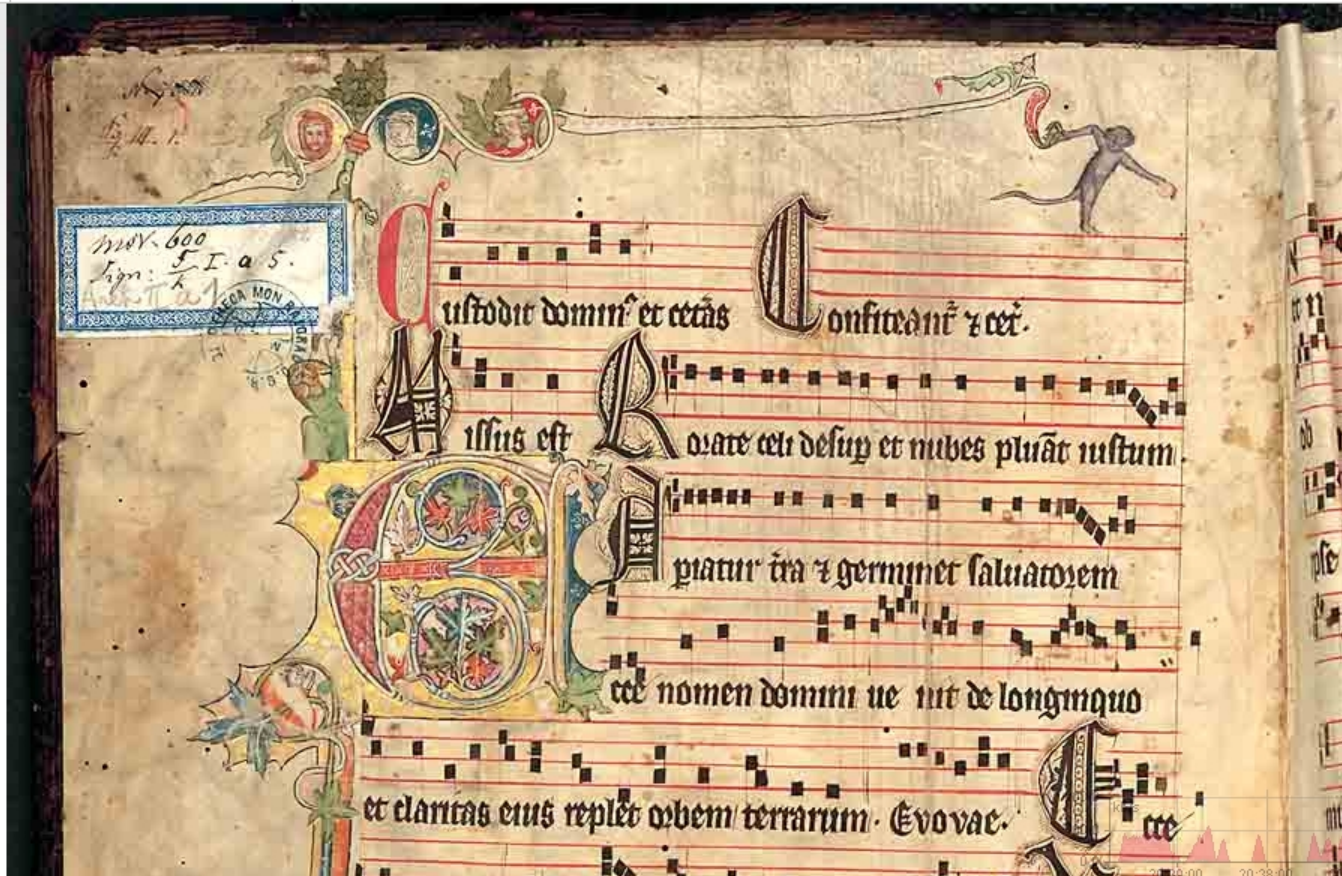 Custodit domin⁹ et cetãs Confiteant̃ ⁊ cet̃.
Missus est Rorate celi desup̱ et nubes pluãt iustum.
Ap̱iatur t̃ra ⁊ germinet saluatorem
Ecce nomen domini ue nit de longinquo
et claritas eius replet orbem terrarum. Evovae. Ecce
msv. 600
Sign: I. a 5.